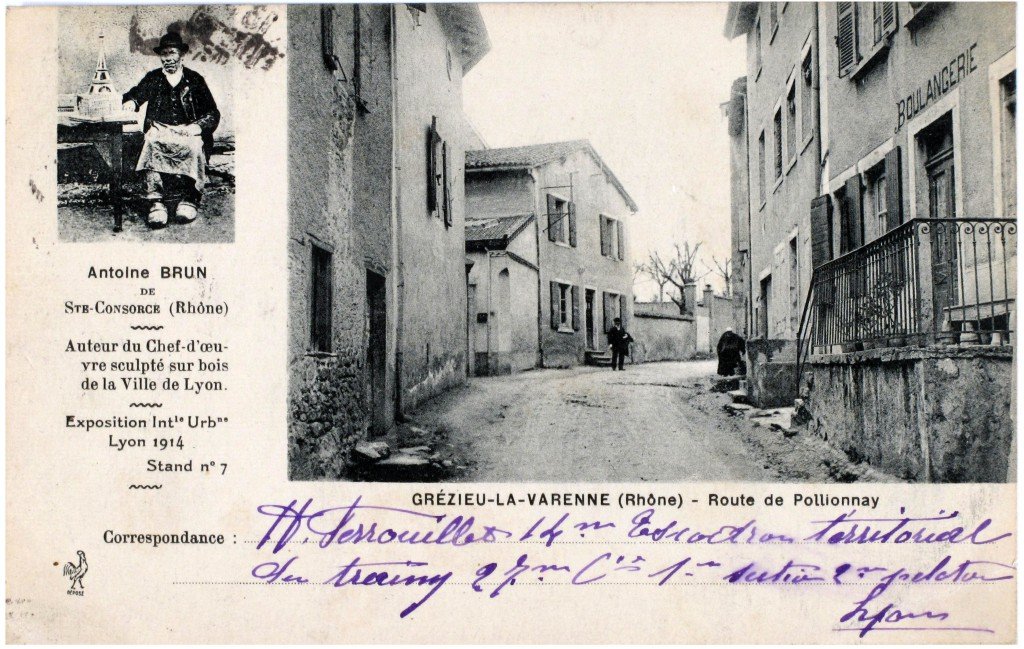 Antoine BRUN
DE
STE-CONSORCE (Rhône)
Auteur du Chef-d'œu-
vre sculpté sur bois
de la Ville de Lyon.
Exposition Intle Urbne
Lyon 1914
Stand n° 7
BOULANGERIE
GRÉZIEU-LA-VARENNE (Rhône) - Route de Pollionnay
Correspondance : H. Ferrouillet 14me Escadron térritorial
du traing 27me Cie 1re section 2me peloton
Lyon
DÉPOSÉ